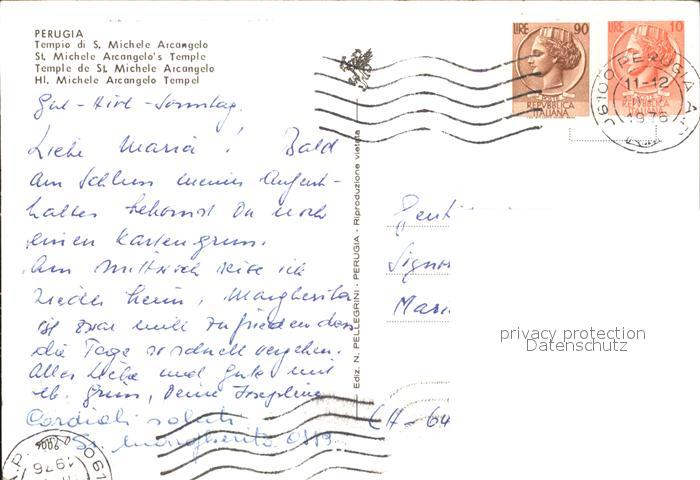 PERUGIA
Tempio di S. Michele Arcangelo
St. Michele Arcangelo's Temple
Temple de St. Michele Arcangelo
Hl. Michele Arcangelo Tempel
Gut-Hirt-Sonntag.
Liebe Maria! Bald
am Schluss meines Aufent-
haltes bekommst Du noch
einen Kartengruss.
Am Mittwoch reise ich
wieder heim, Margherita
ist zwar nicht zufrieden dass
die Tage so schnell vergehen.
Alles Liebe und Gute mit
lb. Gruss, Deine Josephine
Cordiali saluti
Sr. Margherita OSB.
Ediz. N. PELLEGRINI - PERUGIA - Riproduzione vietata
LIRE 90
POSTE
REPVBBLICA
ITALIANA
LIRE 10
REPVBBLICA
ITALIANA
06100 PERUGIA A.
11-12
1976
Gent
Signor
Mari
CH-64
privacy protection
Datenschutz
1976